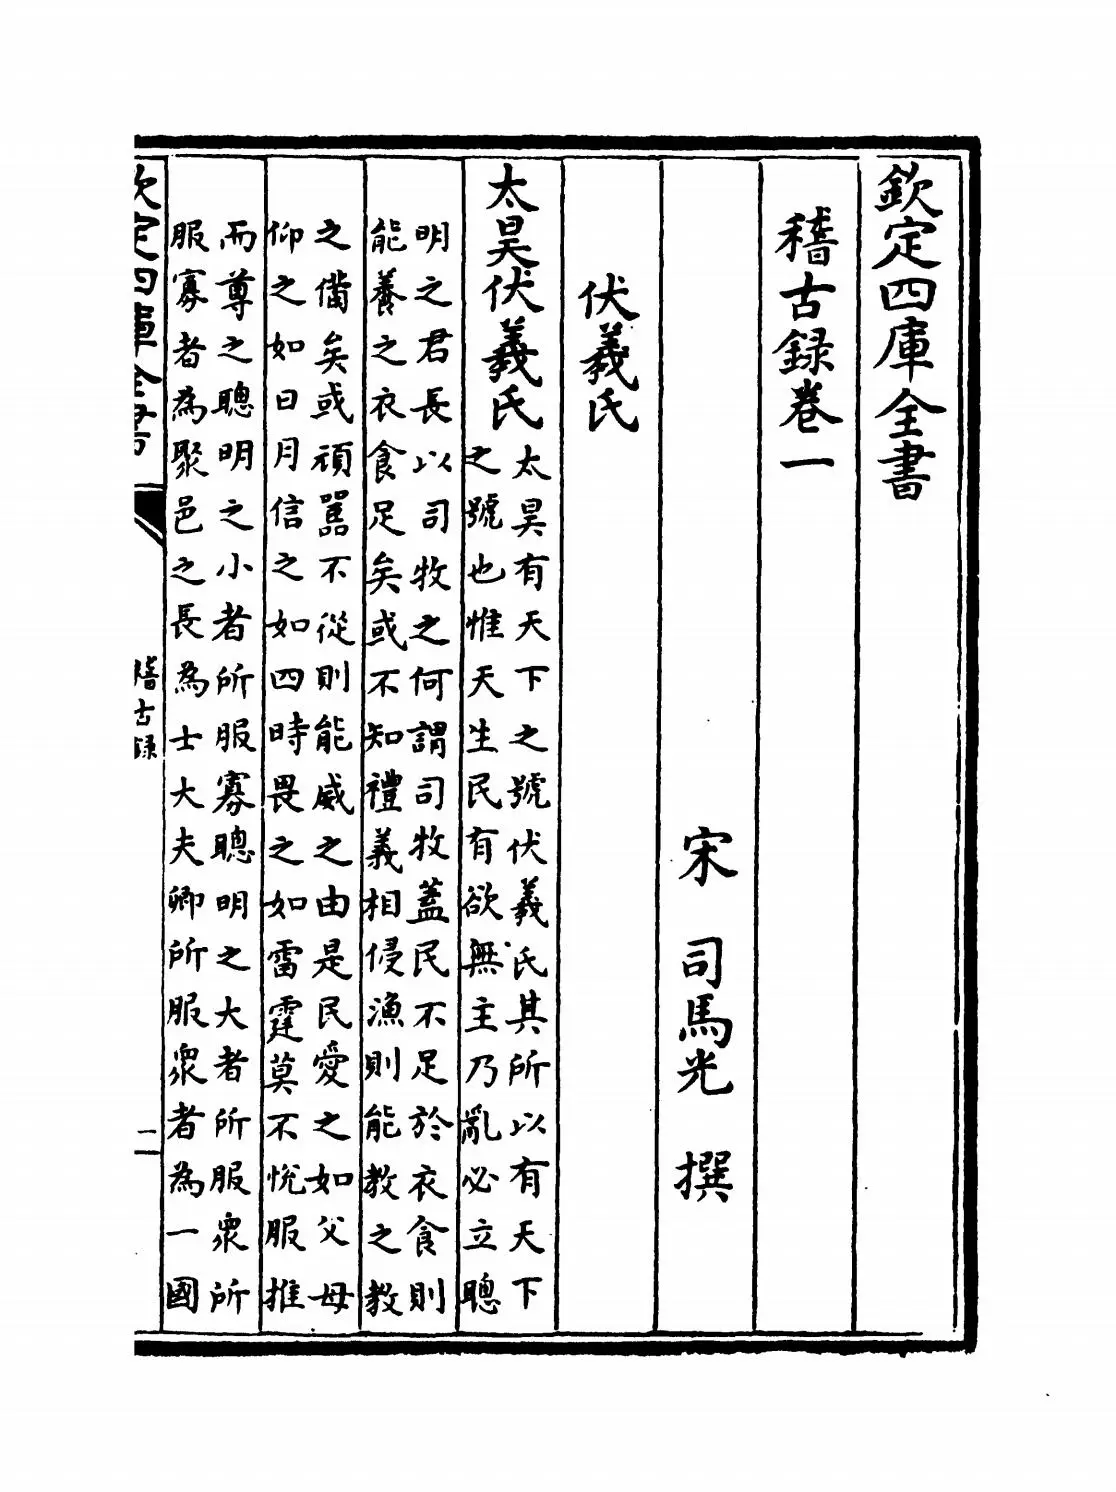 欽定四庫全書
稽古録卷一
宋 司馬光 撰
伏羲氏
太昊伏羲氏
太昊有天下之號伏羲氏其所以有天下
之號也惟天生民有欲無主乃亂必立聰
明之君長以司牧之何謂司牧蓋民不足於衣食則
能養之衣食足矣或不知禮義相侵漁則能教之教
之備矣或頑嚚不從則能威之由是民愛之如父母
仰之如日月信之如四時畏之如雷霆莫不悅服推
而尊之聰明之小者所服寡聰明之大者所服衆所
服寡者為聚邑之長為士大夫卿所服衆者為一國
欽定四庫全書
稽古録
一